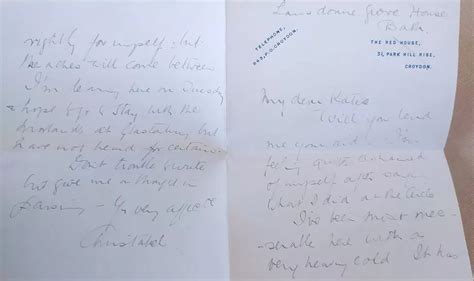 Lansdowne Grove House
Bath
TELEPHONE,
THE RED HOUSE,
31, PARK HILL RISE,
CROYDON.
My dear Katie
Will you lend
me your and I'm
feeling quite ashamed
of myself after saying
what I did at the
I've been most mis-
-erable here with a
very heavy cold It has
rightly for myself: but
the aches will come between
I'm leaving here on Tuesday
& hope to go & stay with the
at Glastonbury but
have not heard for certain
Don't trouble to write
but give me a thought in
passing - Yr very affecte
Christabel